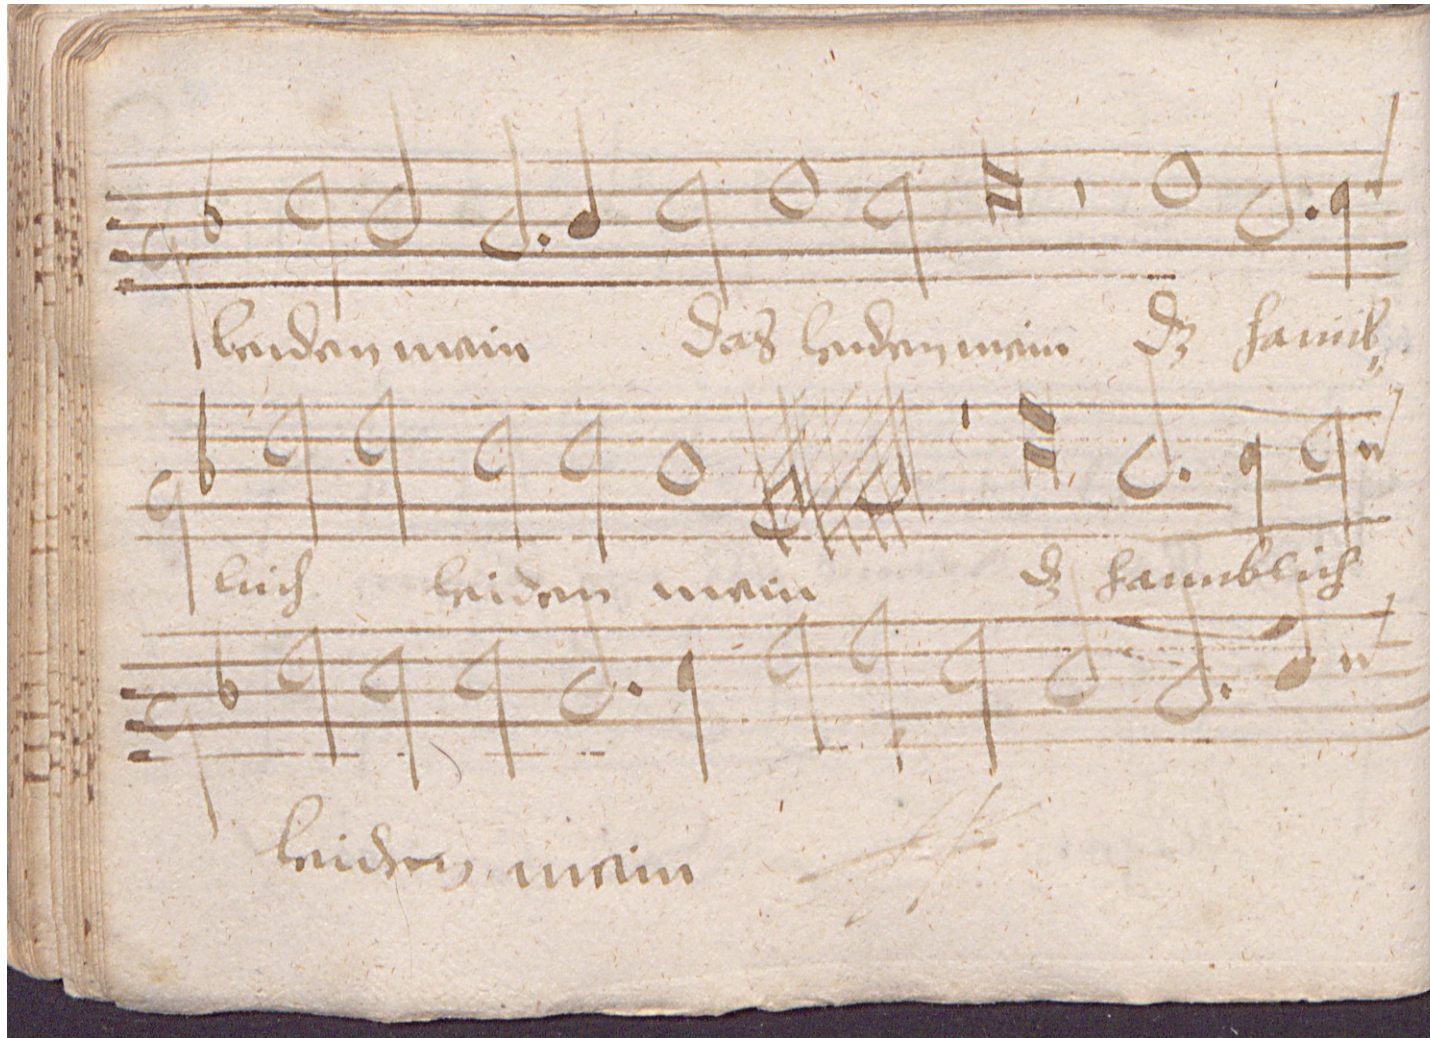 leiden mein das leiden mein dz haimb„
lich leiden mein dz haimblich
leiden mein